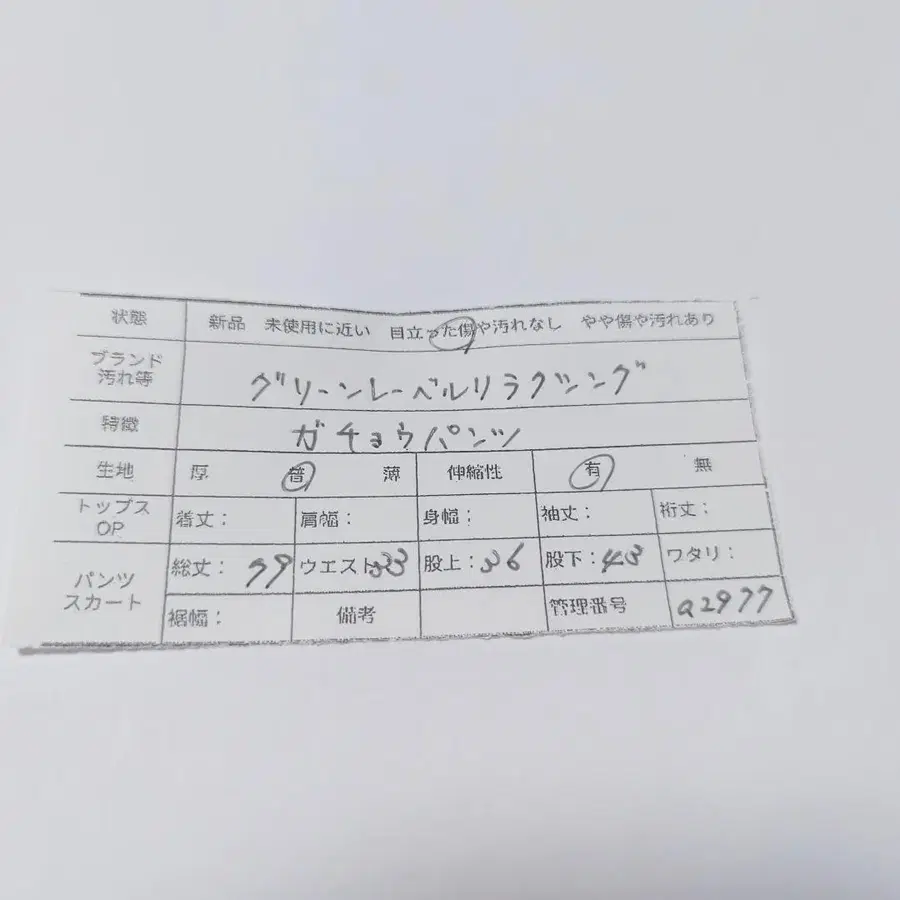 状態 新品 未使用に近い 目立った傷や汚れなし やや傷や汚れあり
ブランド
汚れ等 グリーンレーベルリラクシング
特徴 ガチョウパンツ
生地 厚 普 薄 伸縮性 有 無
トップス
OP 着丈: 肩幅: 身幅: 袖丈: 裄丈:
パンツ
スカート 総丈: 79 ウエスト 33 股上: 36 股下: 43 ワタリ:
裾幅: 備考 管理番号 a2977